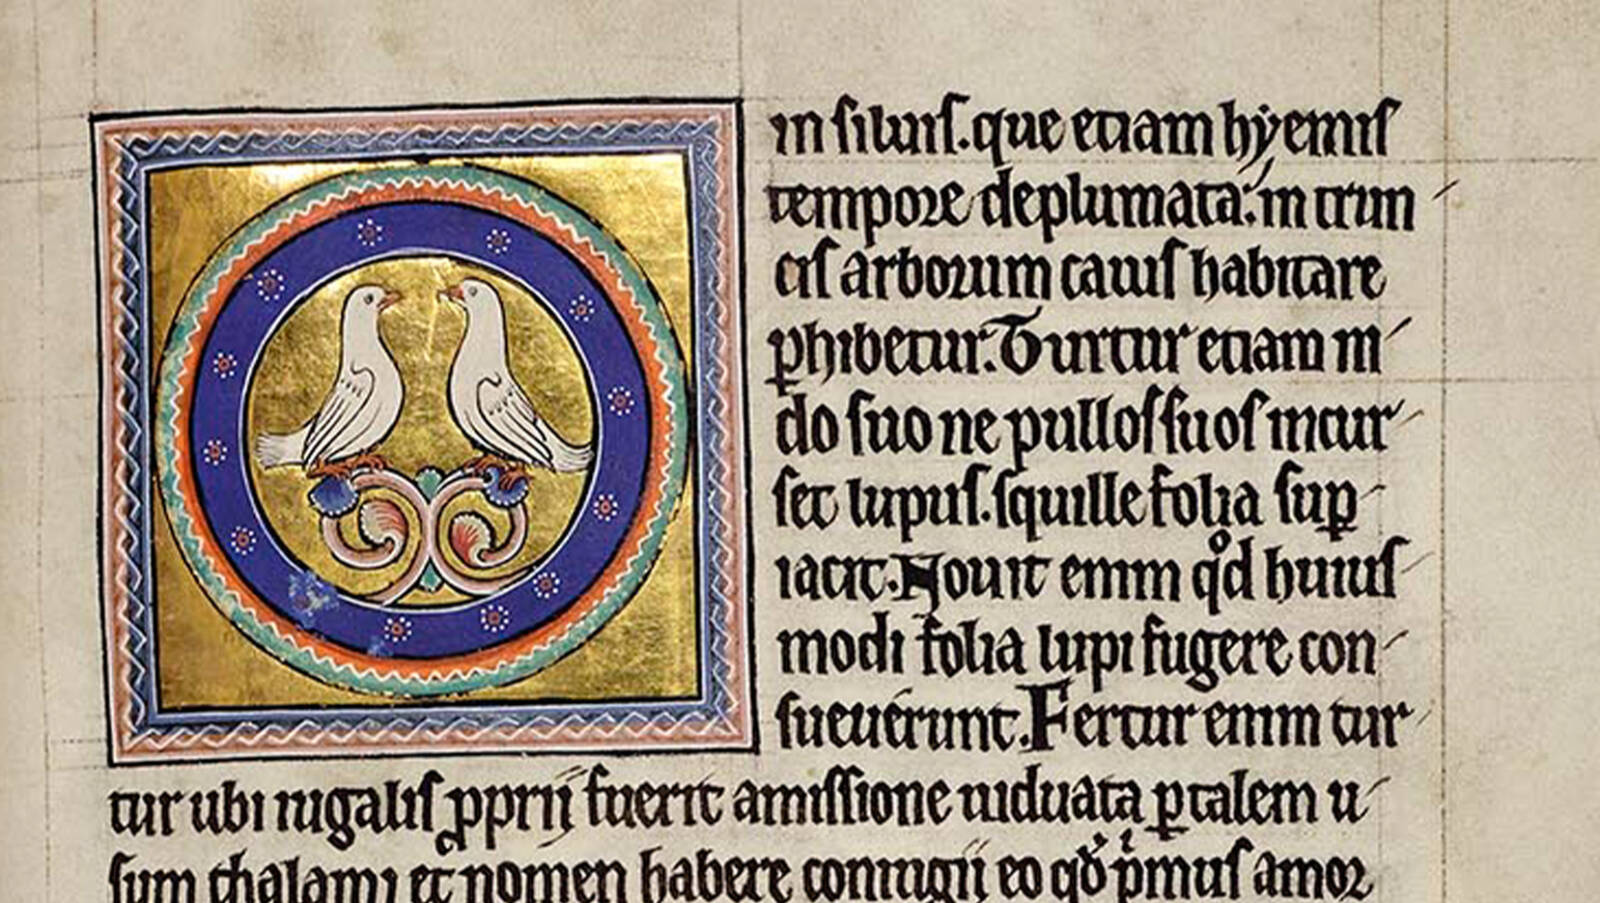 in siluis. que etiam hyemis
tempore deplumata: in trun
cis arborum cauis habitare
ꝑhibetur. Turtur etiam ni
do suo ne pullos suos incur
set lupus. squille folia suꝑ
iacit. Nouit enim qͦd huius
modi folia lupi fugere con
sueuerunt. Fertur enim tur
tur ubi iugalis ꝓprij fuerit amissione uiduata ꝑ talem u
sum thalami et nomen habere coniugij eo qd̓ pͥmus amor